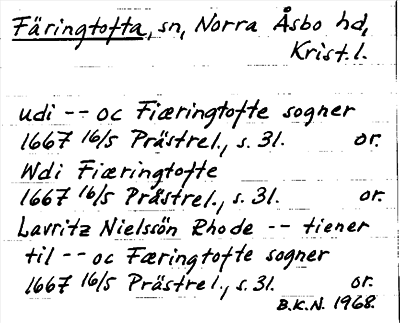 Färingtofta, sn, Norra Åsbo hd,
Krist. l.
udi -- oc Fiæringtofte sogner
1667 16/5 Prästrel., s. 31. or.
Wdi Fiæringtofte
1667 16/5 Prästrel., s. 31. or.
Lavritz Nielssön Rhode -- tiener
til -- oc Færingtofte sogner
1667 16/5 Prästrel., s. 31. or.
B.K.N. 1968.